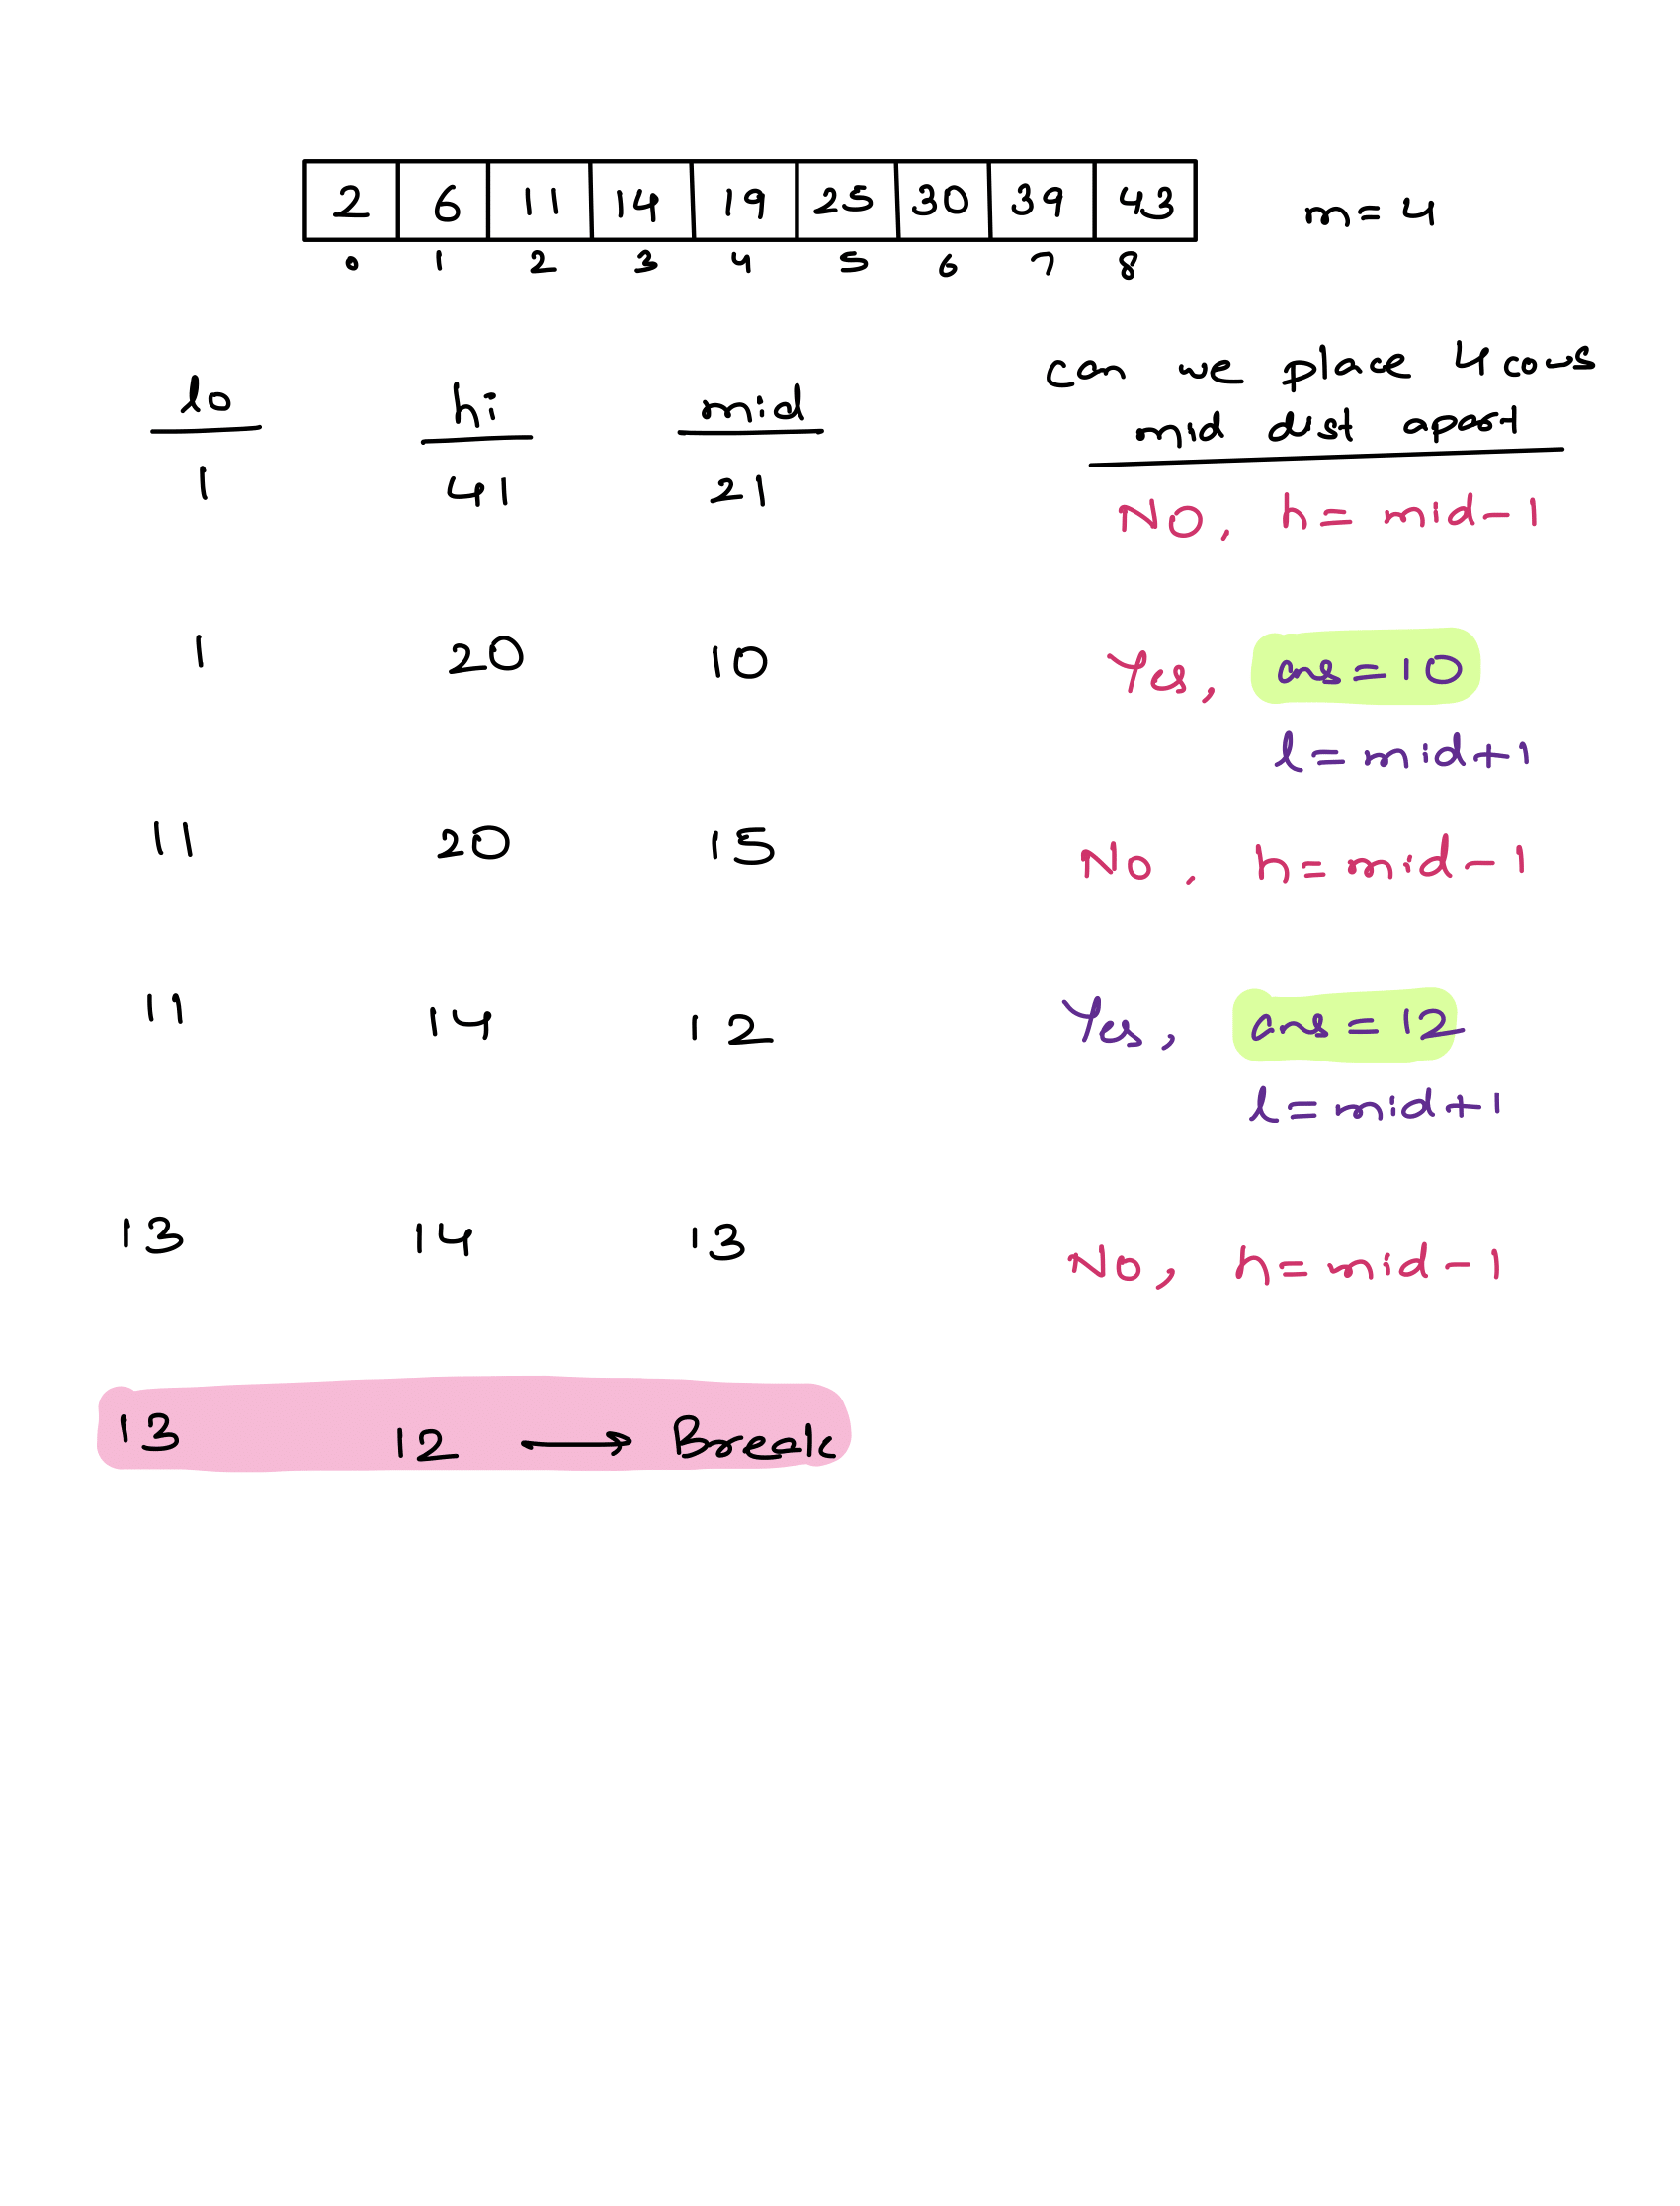 2 6 11 14 19 25 30 39 43 m=4
0 1 2 3 4 5 6 7 8
can we place 4 cows
lo hi mid mid dist apart
1 41 21 NO, h=mid-1
1 20 10 Yes, ans=10
l=mid+1
11 20 15 No, h=mid-1
11 14 12 Yes, ans=12
l=mid+1
13 14 13 No, h=mid-1
13 12 → Break